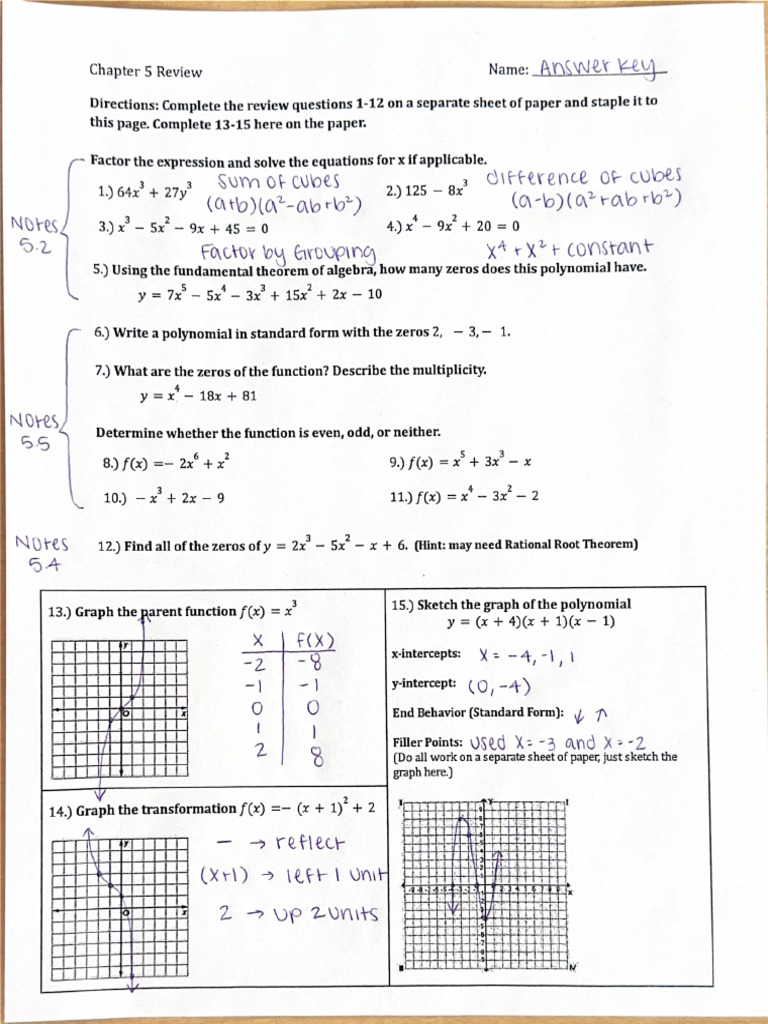 Chapter 5 Review Name: Answer Key
Directions: Complete the review questions 1-12 on a separate sheet of paper and staple it to
this page. Complete 13-15 here on the paper.
Factor the expression and solve the equations for x if applicable.
Sum of cubes difference of cubes
1.) 64x³ + 27y³ 2.) 125 − 8x³
(a+b)(a²-ab+b²) (a-b)(a²+ab+b²)
Notes 5.2
3.) x³ − 5x² − 9x + 45 = 0 4.) x⁴ − 9x² + 20 = 0
Factor by Grouping x⁴ + x² + constant
5.) Using the fundamental theorem of algebra, how many zeros does this polynomial have.
y = 7x⁵ − 5x⁴ − 3x³ + 15x² + 2x − 10
6.) Write a polynomial in standard form with the zeros 2, − 3, − 1.
7.) What are the zeros of the function? Describe the multiplicity.
y = x⁴ − 18x + 81
Notes 5.5
Determine whether the function is even, odd, or neither.
8.) f(x) =− 2x⁶ + x² 9.) f(x) = x⁵ + 3x³ − x
10.) − x³ + 2x − 9 11.) f(x) = x⁴ − 3x² − 2
Notes 5.4
12.) Find all of the zeros of y = 2x³ − 5x² − x + 6. (Hint: may need Rational Root Theorem)
13.) Graph the parent function f(x) = x³
y
x
O
x f(x)
-2 -8
-1 -1
0 0
1 1
2 8
14.) Graph the transformation f(x) =− (x + 1)² + 2
y
x
O
− → reflect
(x+1) → left 1 unit
2 → up 2 units
15.) Sketch the graph of the polynomial
y = (x + 4)(x + 1)(x − 1)
x-intercepts: x = -4, -1, 1
y-intercept: (0, -4)
End Behavior (Standard Form): ↓ ↑
Filler Points: used x = -3 and x = -2
(Do all work on a separate sheet of paper, just sketch the
graph here.)
y
x